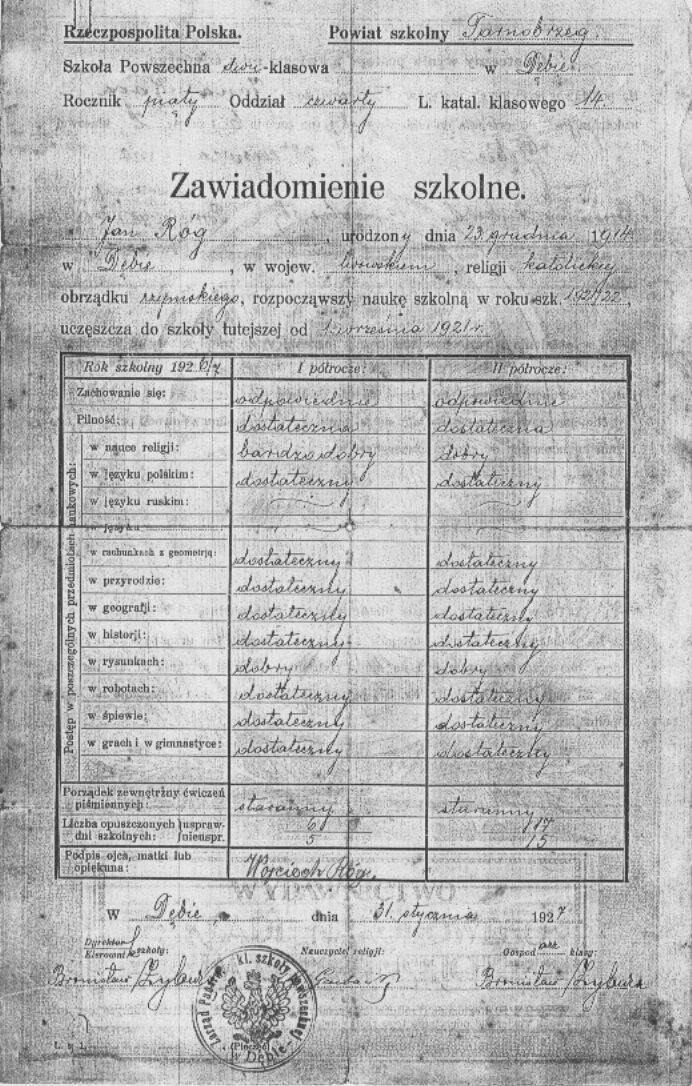 Rzeczpospolita Polska. Powiat szkolny Tarnobrzeg.
Szkoła Powszechna dwu-klasowa w Dębie.
Rocznik piąty Oddział czwarty L. katal. klasowego 14.
Zawiadomienie szkolne.
Jan Róg, urodzony dnia 23. grudnia 1914
w Dębie, w wojew. lwowskiem, religji katolickiej
obrządku rzymskiego, rozpocząwszy naukę szkolną w roku szk. 1921/22,
uczęszcza do szkoły tutejszej od 1 września 1921 r.
Rok szkolny 192 6/7 I półrocze: II półrocze:
Zachowanie się: odpowiednie odpowiednie
Pilność: dostateczna dostateczna
Postęp w poszczególnych przedmiotach naukowych:
w nauce religji: bardzo dobry dobry
w języku polskim: dostateczny dostateczny
w języku ruskim:
w języku
w rachunkach z geometrją: dostateczny dostateczny
w przyrodzie: dostateczny dostateczny
w geografji: dostateczny dostateczny
w historji: dostateczny dostateczny
w rysunkach: dobry dobry
w robotach: dostateczny dostateczny
w śpiewie: dostateczny dostateczny
w grach i w gimnastyce: dostateczny dostateczny
Porządek zewnętrzny ćwiczeń
piśmiennych: staranny staranny
Liczba opuszczonych uspraw. 6 17
dni szkolnych: nieuspr. 5 15
Podpis ojca, matki lub
opiekuna: Wojciech Róg.
W Dębie, dnia 31. stycznia 1927
Dyrektor
Kierownik szkoły: Nauczyciel religji: Gospod arz klasy:
Bronisław Bronisław
Zarząd kl. szkoły powszechnej
w Dębie
(Pieczęć)